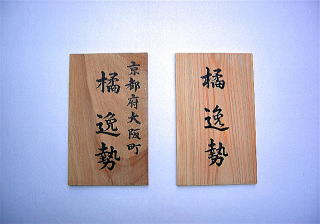 京都府大阪町
橘逸勢
橘逸勢